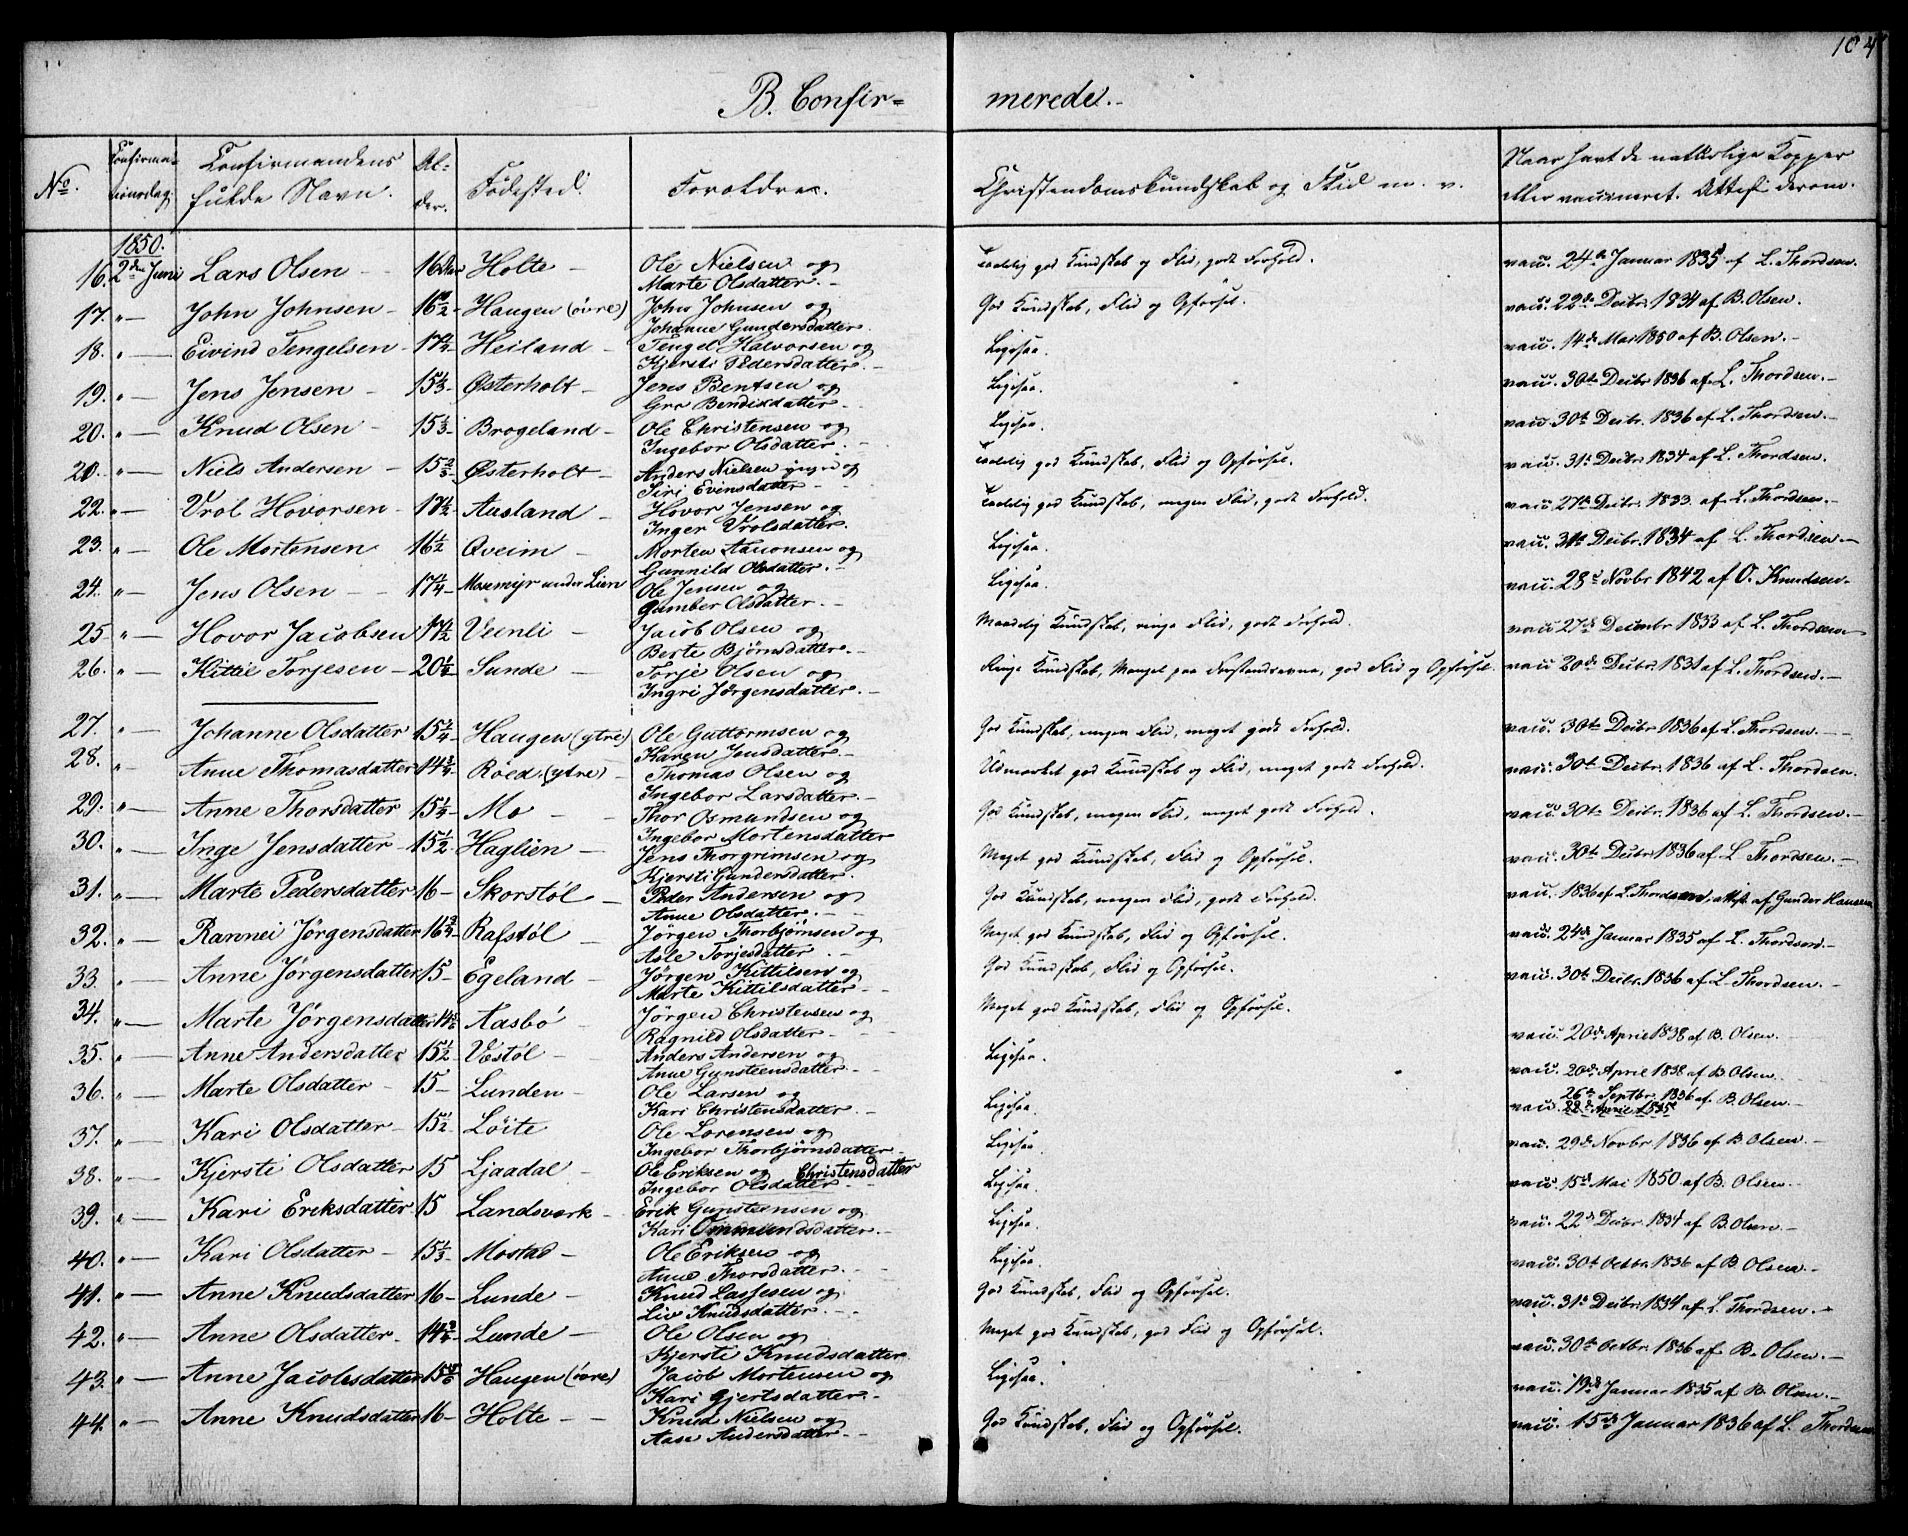 104
B. Confir= merede.-
No. Confirma- Confirmandens Al- Fødested. Forældre. Christendomskundskab og Flid m. v. Naar havt de naturlige Kopper
tionsdag. fulde Navn. der. eller vaccineret. Attest derom.
1850.
16. 2den Juni Lars Olsen - 16 Holte - Ole Nielsen og Marte Olsdatter. - god Kundskab og Flid, godt Forhold. vacc. 24de Januar 1835 af L. Thordsen.
17. " - John Johnsen - 16 1/2 - Haugen (øvre) John Johnsen og Johanne Gundersdatter. God Kundskab, Flid og Opførsel. vacc. 22de Decbr. 1834 af B. Olsen.
18. " - Eivind Tengelsen - Heiland - Tengel Halvorsen og Kjersti Pedersdatter. - Ligesaa. vacc. 14de Mai 1850 af B. Olsen. -
19. " - Jens Jensen - 15 1/3 - Østerholt - Jens Bentsen og Gro Bendixdatter - Ligesaa. vacc. 30te Decbr 1836 af L. Thordsen. -
20. " - Knud Olsen - 15 - Brogeland - Ole Christensen og Ingebor Olsdatter. - Ligesaa. vacc. 30te Decbr. 1836 af L. Thordsen. -
20. " - Niels Andersen - 15 2/3 - Østerholt - Anders Nielsen yngre og Siri Evinsdatter - god Kundskab, Flid og Opførsel. vacc. 31te Decbr. 1834 af L. Thordsen.
22. " - Vrol Hovorsen - 17 1/2 - Ausland - Hovor Jensen og Inger Vrolsdatter. god Kundskab, megen Flid, godt Forhold. vacc. 27de Decbr. 1833. af L. Thordsen. -
23. " - Ole Mortensen 16 1/2 Qveim - Morten Aanonsen og Gunnild Olsdatter. - Ligesaa. vacc. 31te Decbr. 1834 af L. Thordsen. -
24. " - Jens Olsen - - 17 1/4 - Mosemyr under Lien Ole Jensen og Gumber Olsdatter. - Ligesaa. vacc. 28de Novbr 1842 af O. Knudsen.
25 " - Hovor Jacobsen 17 1/2 Veenli - Jacob Olsen og Berte Bjørnsdatter. - Maadelig Kundskab, ringe Flid, godt Forhold. vacc. 27de Decembr 1833 af L. Thordsen -
26. " - Kittil Torjesen - 20 1/2 - Sunde - Torje Olsen og Ingri Jørgensdatter. - Ringe Kundskab, Mangel paa Forstandsevne, god Flid og Opførsel. vacc 20de Decbr. 1831 af L. Thordsen. -
27. " - Johanne Olsdatter 15 1/4 - Haugen (ytre) Ole Guttormsen og Karen Jensdatter. - God Kundskab, megen Flid, meget godt Forhold. vacc. 30te Decbr 1836 af L. Thordsen. -
28. " - Anne Thomasdatter 14 3/4 - Røed. (ytre) - Thomas Olsen og Ingebor Larsdatter. - Udmærket god Kundskab og Flid, meget godt Forhold. vacc. 30te Decbr. 1836 af L. Thordsen.
29. " - Anne Thorsdatter 15 1/4 - Mo - - Thor Osmundsen og Ingebor Mortensdatter God Kundskab, megen Flid, meget godt Forhold. vacc. 30te Decbr. 1836 af L. Thordsen. -
30. " - Inge Jensdatter - 15 1/2 Haglien - Jens Thorgrimsen og Kjersti Gundersdatter. Meget god Kundskab, Flid og Opførsel. vacc. 30te Decbr 1836 af L. Thordsen. -
31. " - Marte Pedersdatter 16 - Skorstøl - Peder Andersen og Anne Olsdatter. - God Kundskab, megen Flid, godt Forhold. vacc. 1836 af L. Thordsen, attest. af Gunder Hansen
32. " - Rannei Jørgensdatter 16 3/4 - Rafstøl - Jørgen Thorbjørnsen og Asle Torjesdatter. - Meget god Kundskab, Flid og Opførsel. vacc. 24de Januar 1835 af L. Thordsen. -
33. " - Anne Jørgensdatter 15 - Egeland - Jørgen Kittilsen og Marte Kittilsdatter - God Kundskab, Flid og Opførsel. vacc. 30te Decbr. 1836 af L. Thordsen. -
34. " - Marte Jørgensdatter Aasbø - Jørgen Christensen og Ragnild Olsdatter. - Meget god Kundskab, Flid og Opførsel. vacc. 20de April 1838 af B. Olsen. -
35. " - Anne Andersdatter 15 1/2 Vestøl - Anders Andersen og Anne Gunsteensdatter. - Ligesaa. vacc. 20de April 1838 af B. Olsen. -
36. " - Marte Olsdatter - 15 - Lunden - Ole Larsen og Kari Christensdatter. - Ligesaa. vacc. 26te Septbr. 1836 af B. Olsen. -
22de April 1835
37. " - Kari Olsdatter - 15 1/2 Løite Ole Lorensen og Ingebor Thorbjørnsdatter - Ligesaa. vacc. 29de Novbr 1836 af B. Olsen. -
38. " - Kjersti Olsdatter 15 Ljaadal - Ole Eriksen og Ingebor Olsdatter Christensdatter Ligesaa. vacc. 15de Mai 1850 af B. Olsen. -
39. " - Kari Eriksdatter 15 Landsverk - Erik Gunsteensen og Kari Ommundsdatter. - Ligesaa. vacc. 22de Decbr. 1834 af B. Olsen. -
40. " - Kari Olsdatter - 15 1/3 - Mostad - Ole Eriksen og Anne Thorsdatter. - Ligesaa. vacc. 30te Octbr. 1836 af B. Olsen. -
41. " - Anne Knudsdatter 16 - Lunde - Knud Lassesen og Liv Knudsdatter. - God Kundskab, Flid og Opførsel. vacc. 31te Decbr 1834 af L. Thordsen. -
42. " - Anne Olsdatter - 14 3/4 - Lunde - Ole Olsen og Kjersti Knudsdatter. Meget god Kundskab, god Flid og Opførsel. vacc. 30te Octbr. 1836 af B. Olsen. -
43. " - Anne Jacobsdatter Haugen (øvre) Jacob Mortensen og Kari Gjertsdatter. - Ligesaa. vacc. 19de Januar 1835 af B. Olsen. -
44. " - Anne Knudsdatter 16 - Holte - - Knud Nielsen og Aase Andersdatter. - God Kundskab, Flid og Opførsel. vacc. 15de Januar 1836 af L. Thordsen